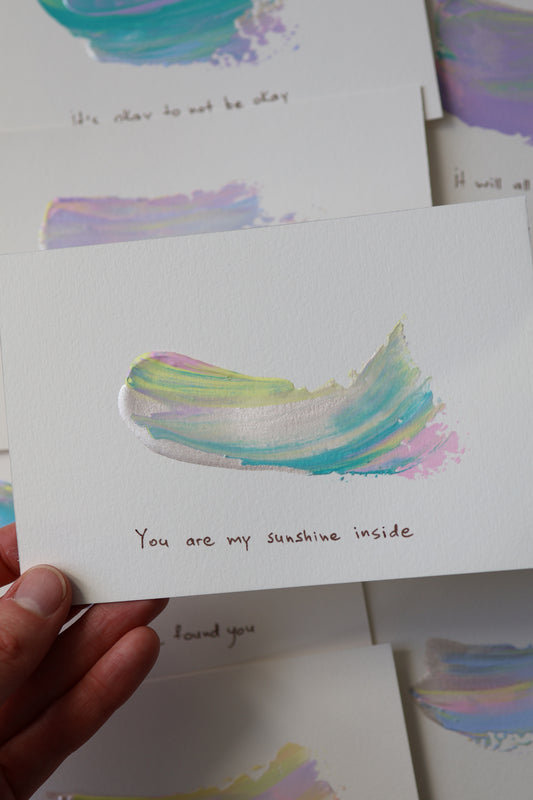 it's okay to not be okay
it will all
You are my sunshine inside
found you